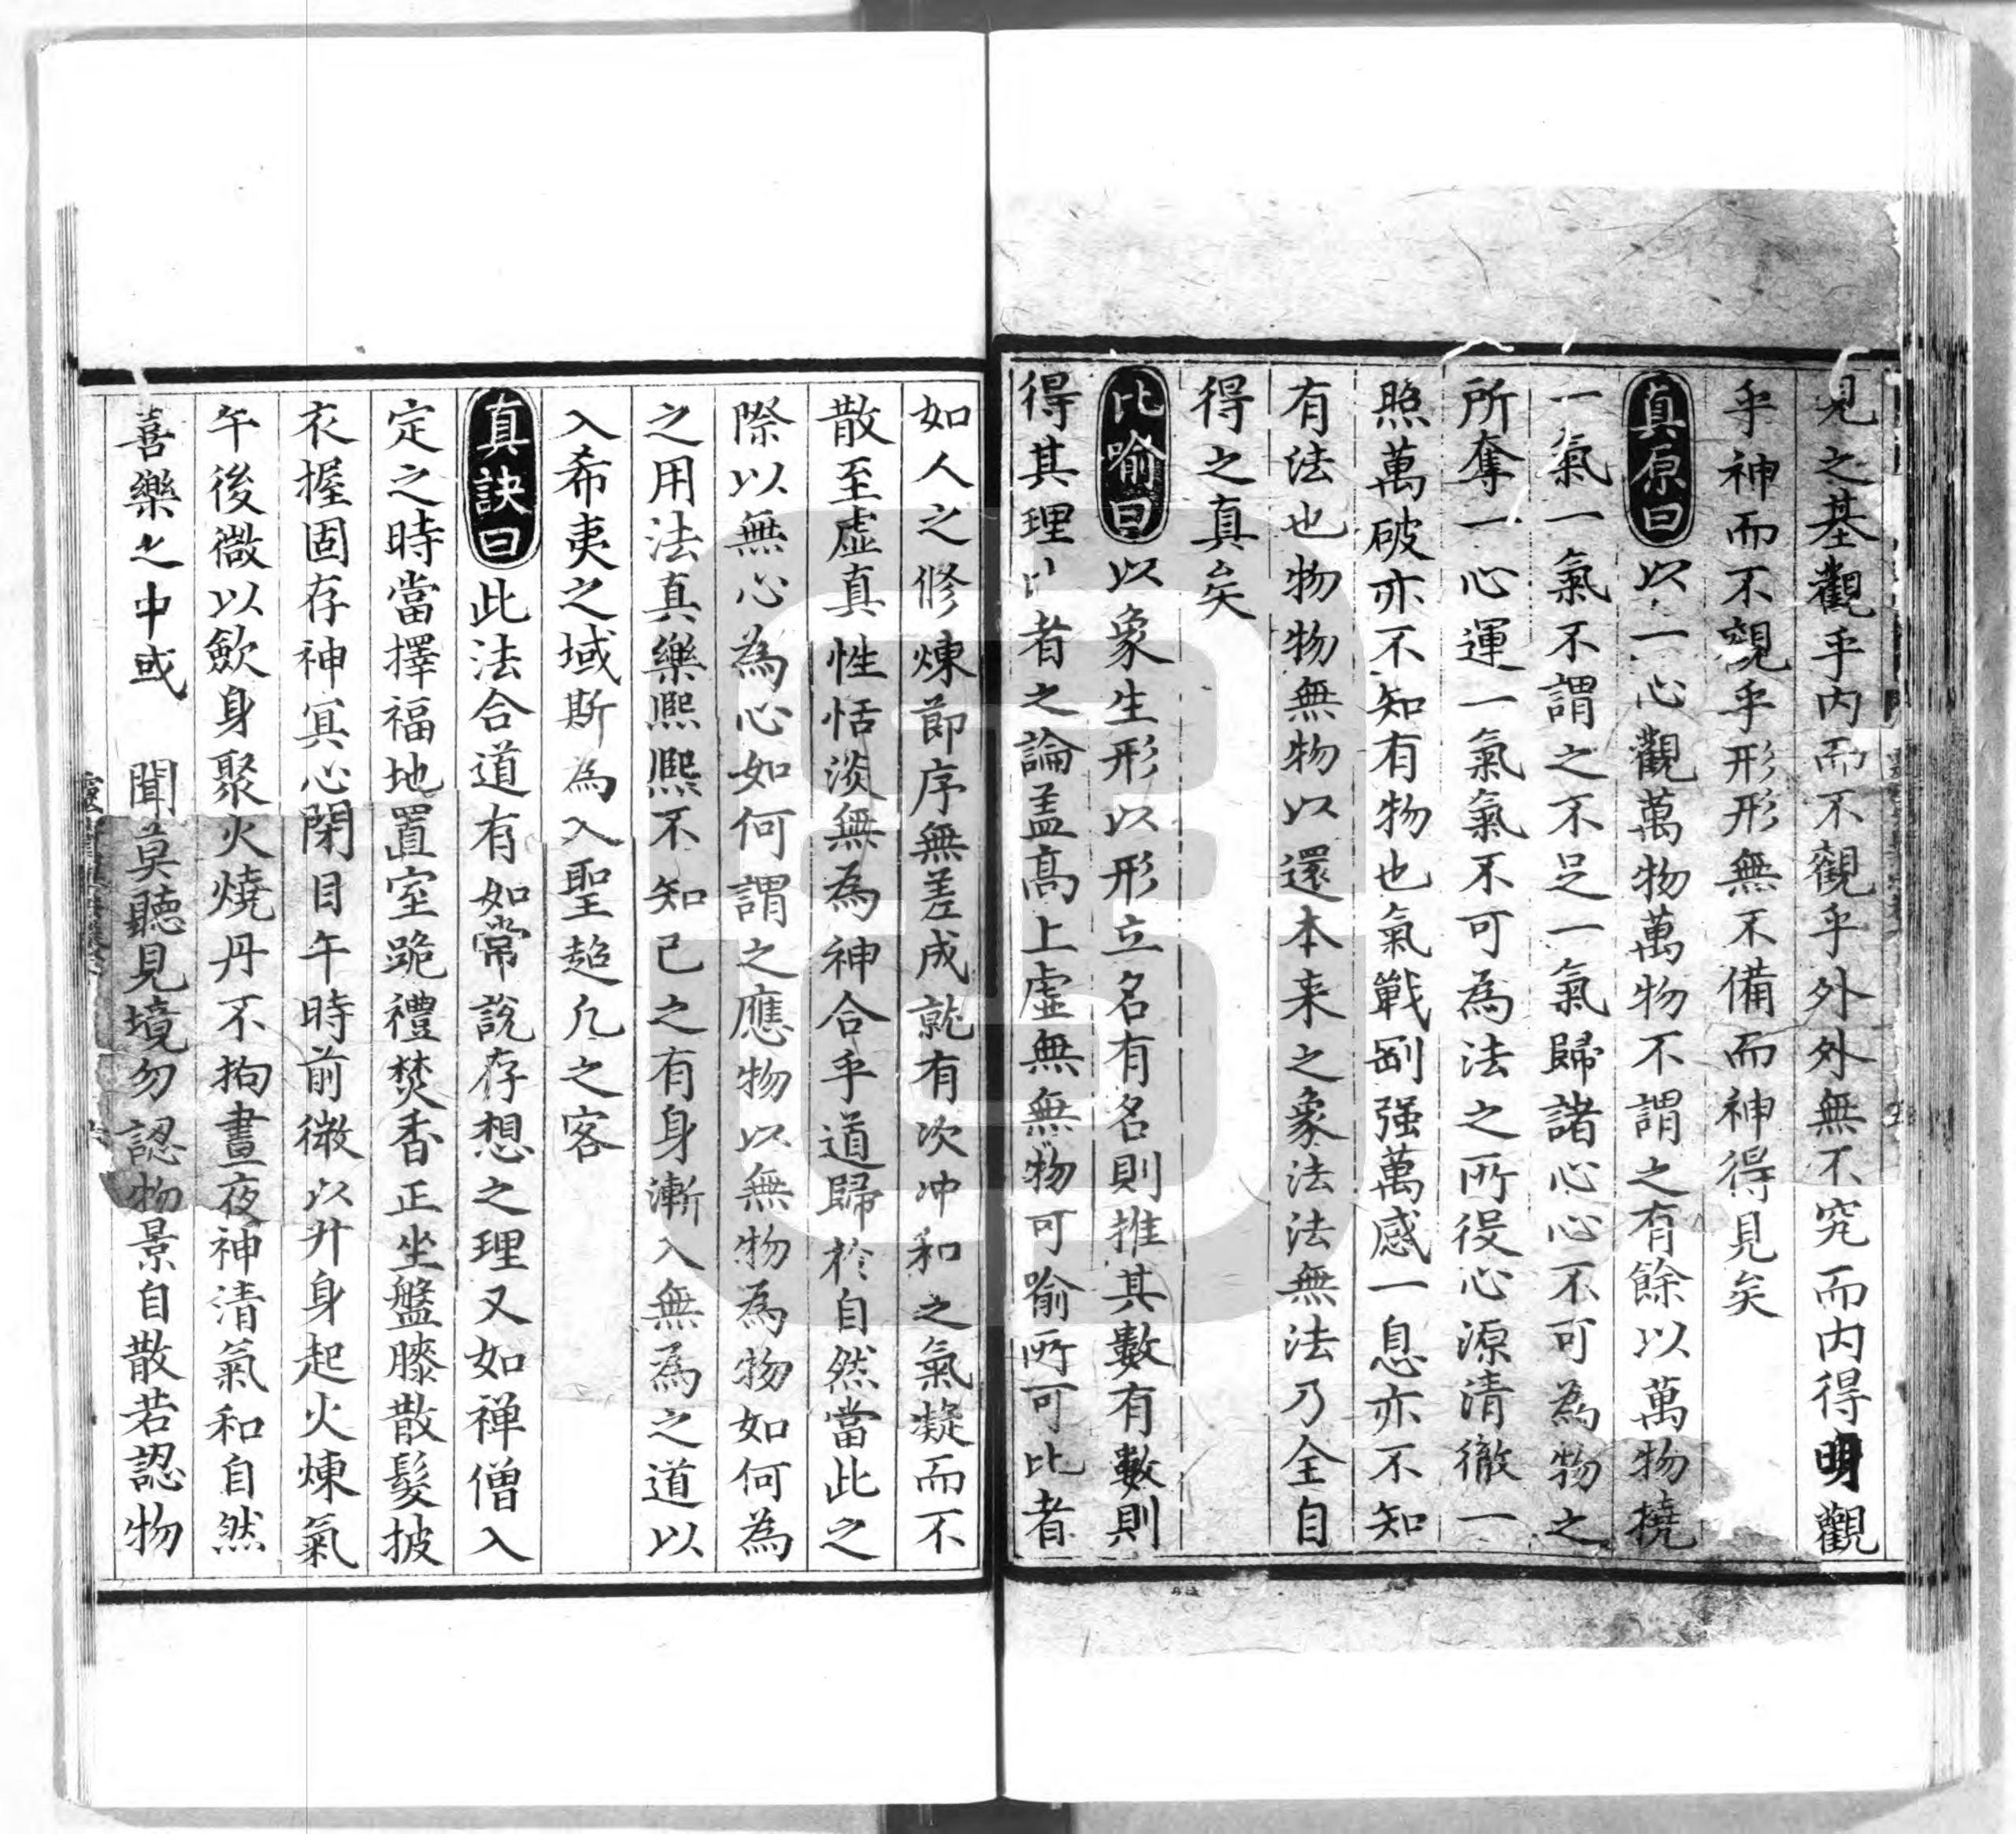 見之基觀乎内而不觀乎外外無不究而内得明觀
乎神而不覩乎形形無不備而神得見矣
真原曰以一心觀萬物萬物不謂之有餘以萬物撓
一氣一氣不謂之不足一氣歸諸心心不可為物之
所奪一心運一氣氣不可為法之所役心源清徹一
照萬破亦不知有物也氣戰剛强萬感一息亦不知
有法也物物無物以還本来之象法法無法乃全自
得之真矣
比喻曰以象生形以形立名有名則推其數有數則
得其理者之論盖高上虛無無物可喻所可比者
如人之修煉節序無差成就有次冲和之氣凝而不
散至虛真性恬淡無為神合乎道歸於自然當此之
際以無心為心如何謂之應物以無物為物如何為
之用法真樂熈熈不知己之有身漸入無為之道以
入希夷之域斯為入聖超凡之客
真訣曰此法合道有如常說存想之理又如禅僧入
定之時當擇福地置室跪禮焚香正坐盤膝散髮披
衣握固存神冥心閉目午時前微以升身起火煉氣
午後微以歛身聚火燒丹不拘晝夜神清氣和自然
喜樂之中或 聞莫聽見境勿認物景自散若認物